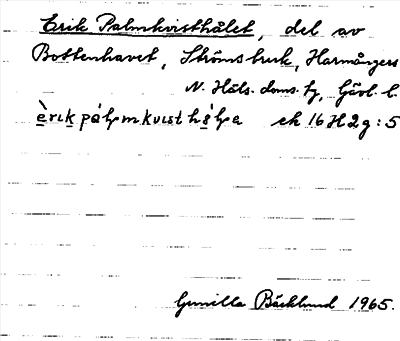 Erik Palmkvisthålet, del av
Bottenhavet, Ströms bruk, Harmångers
N. Häls. doms. tj, Gävl. l.
èrik pálmkvisthå̀la ek 16H2g:5
Gunilla Bäcklund 1965.